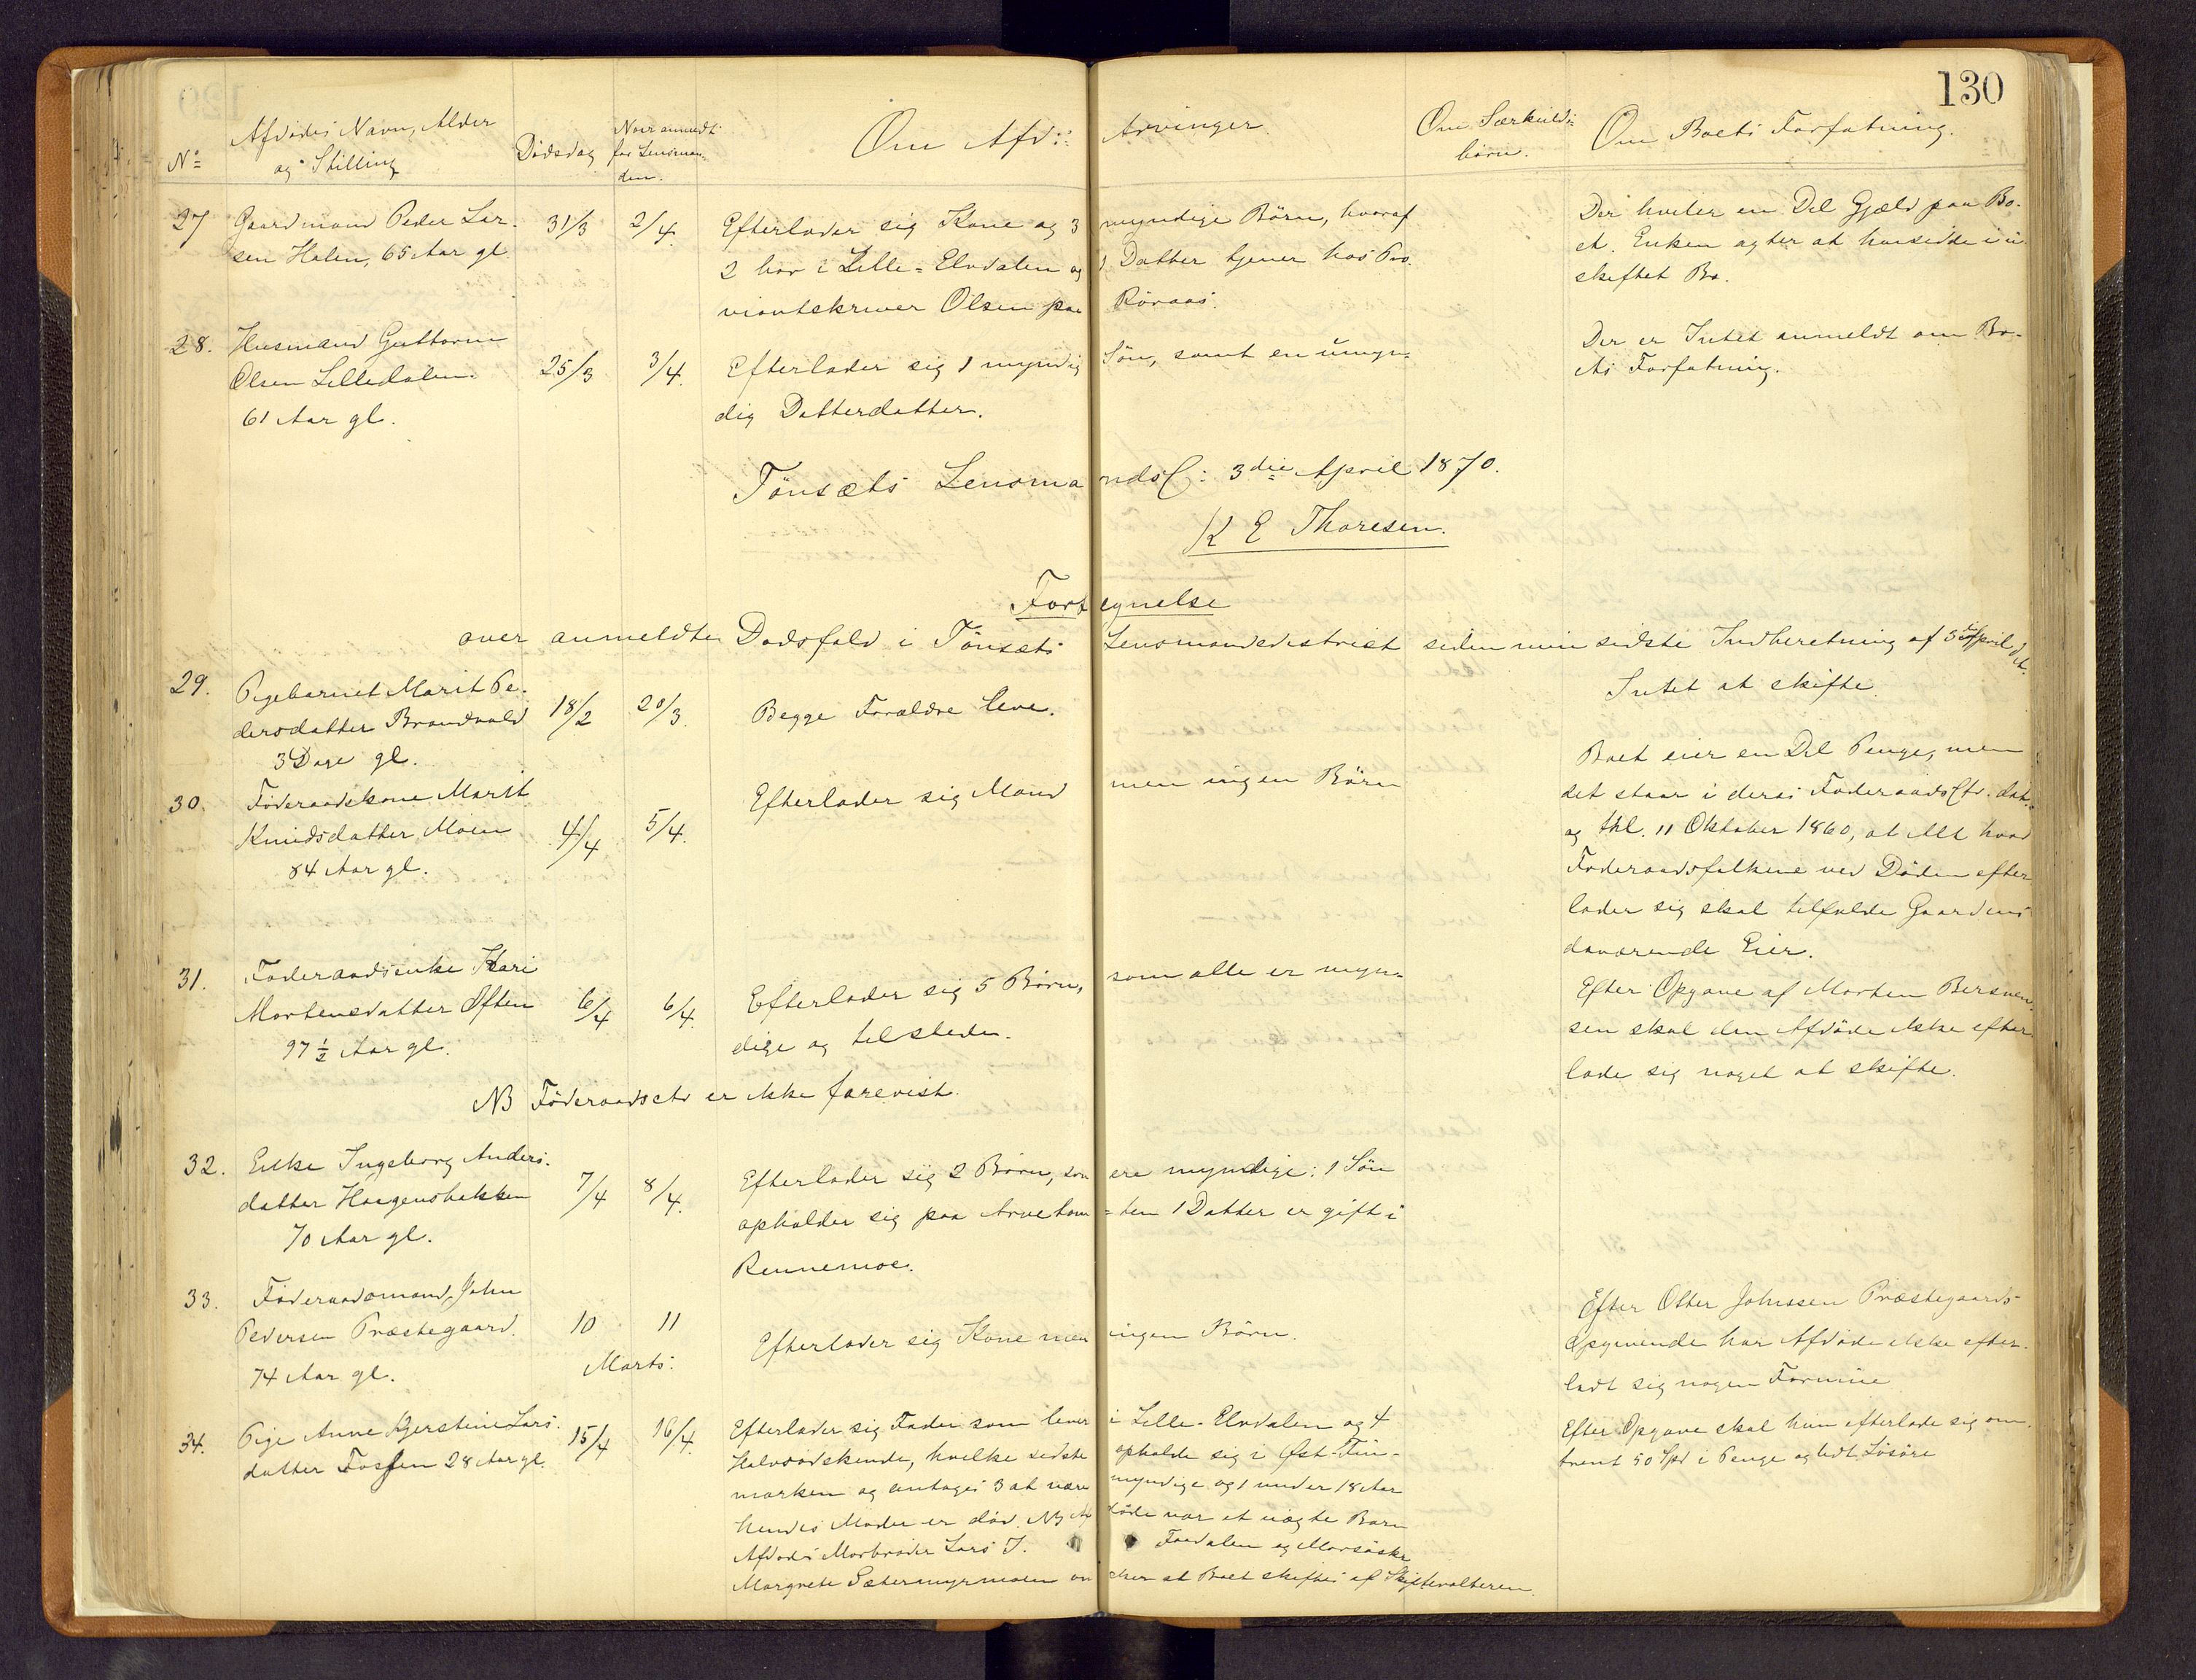 130
Afdødes Navn, Alder
og Stilling
Nº
Dødsdag
Naar anmeldt
for Lensman-
den.
Om Afd:s Arvinger.
Om Særkulds-
børn.
Om Boets Forfatning.
27 Gaardmand Peder Lar-
sen Holen, 65 Aar gl
31/3 2/4.
Efterlader sig Kone og 3 myndige Børn, hvoraf
2 bor i Lille-Elvdalen og 1 Datter tjener hos Pro-
viantskriver Olsen paa Röraas.
Der hviler en Del Gjæld paa Bo-
et. Enken agter at hensidde i u-
skiftet Bo.
28. Husmand Guttorm
Olsen Lilledalen.
61 Aar gl.
25/3 3/4.
Efterlader sig 1 myndig Søn, samt en umyn-
dig Datterdatter.
Der er Intet anmeldt om Bo-
ets Forfatning.
Tönsæts Lensmands: 3die April 1870.
K E Thoresen.
Fortegnelse
over anmeldte Dødsfald i Tönsæts Lensmandsdistrict siden min sidste Indberetning af 3die April
29. Pigebarnet Marit Pe-
dersdatter Brandvold
3 Dage gl.
18/2 20/3.
Begge Forældre leve.
Intet at skifte.
30. Föderaadskone Marit
Knudsdatter Moen
84 Aar gl.
4/4 5/4.
Efterlader sig Mand men ingen Börn
Boet eier en Del Penge, men
det staar i deres Föderaads dat.
og thl. 11 Oktober 1860, at Alt hvad
Föderaadsfolkene ved Döden efter-
lader sig skal tilfalde Gaardens
daværende Eier.
31. Föderaadsenke Kari
Mortensdatter Often
97 1/2 Aar gl.
6/4 6/4.
Efterlader sig 5 Börn, som alle er myn-
dige og tilstede.
Efter Opgave af Morten Bersven-
sen skal den Afdöde ikke efter-
lade sig noget at skifte.
NB Föderaads er ikke forevist.
32. Enke Ingeborg Anders-
datter Haagensbakken
70 Aar gl.
7/4 8/4.
Efterlader sig 2 Börn, som ere myndige: 1 Sön
opholder sig paa Arvetom-ten 1 Datter er gift i
Rennemoe.
33. Föderaadsmand John
Pedersen Præstegaard.
74 Aar gl.
10 11
Marts.
Efterlader sig Kone men ingen Börn.
Efter Olter Johnssen Præstegaards
Opgivende har Afdöde ikke efter-
ladt sig nogen Formue
34. Pige Anne Kjerstine Lars-
datter Fossen 28 Aar gl.
15/4 16/4.
Efterlader sig Fader som lever i Lille-Elvdalen og 4
Halvsödskende, hvilke sidste opholde sig i Øst-Fin-
marken og antages 3 at være myndige og 1 under 18 Aar
hendes Moder er död. NB Afdöde var et uægte Barn
Afdödes Morbroder Lars J. Faadalen og Morsöster
Margrete Sætermyrmoen önsker at Boet skiftes af Skifteforvalteren.
Efter Opgave skal hun efterlade sig om-
trent 50 Spd i Penge og lidt Lösöre